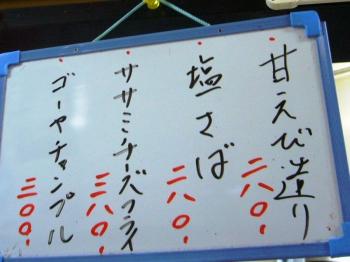 ・甘えび造り 二八〇.
・塩さば 二八〇.
・ササミチーズフライ 三八〇.
・ゴーヤチャンプル 三〇〇.